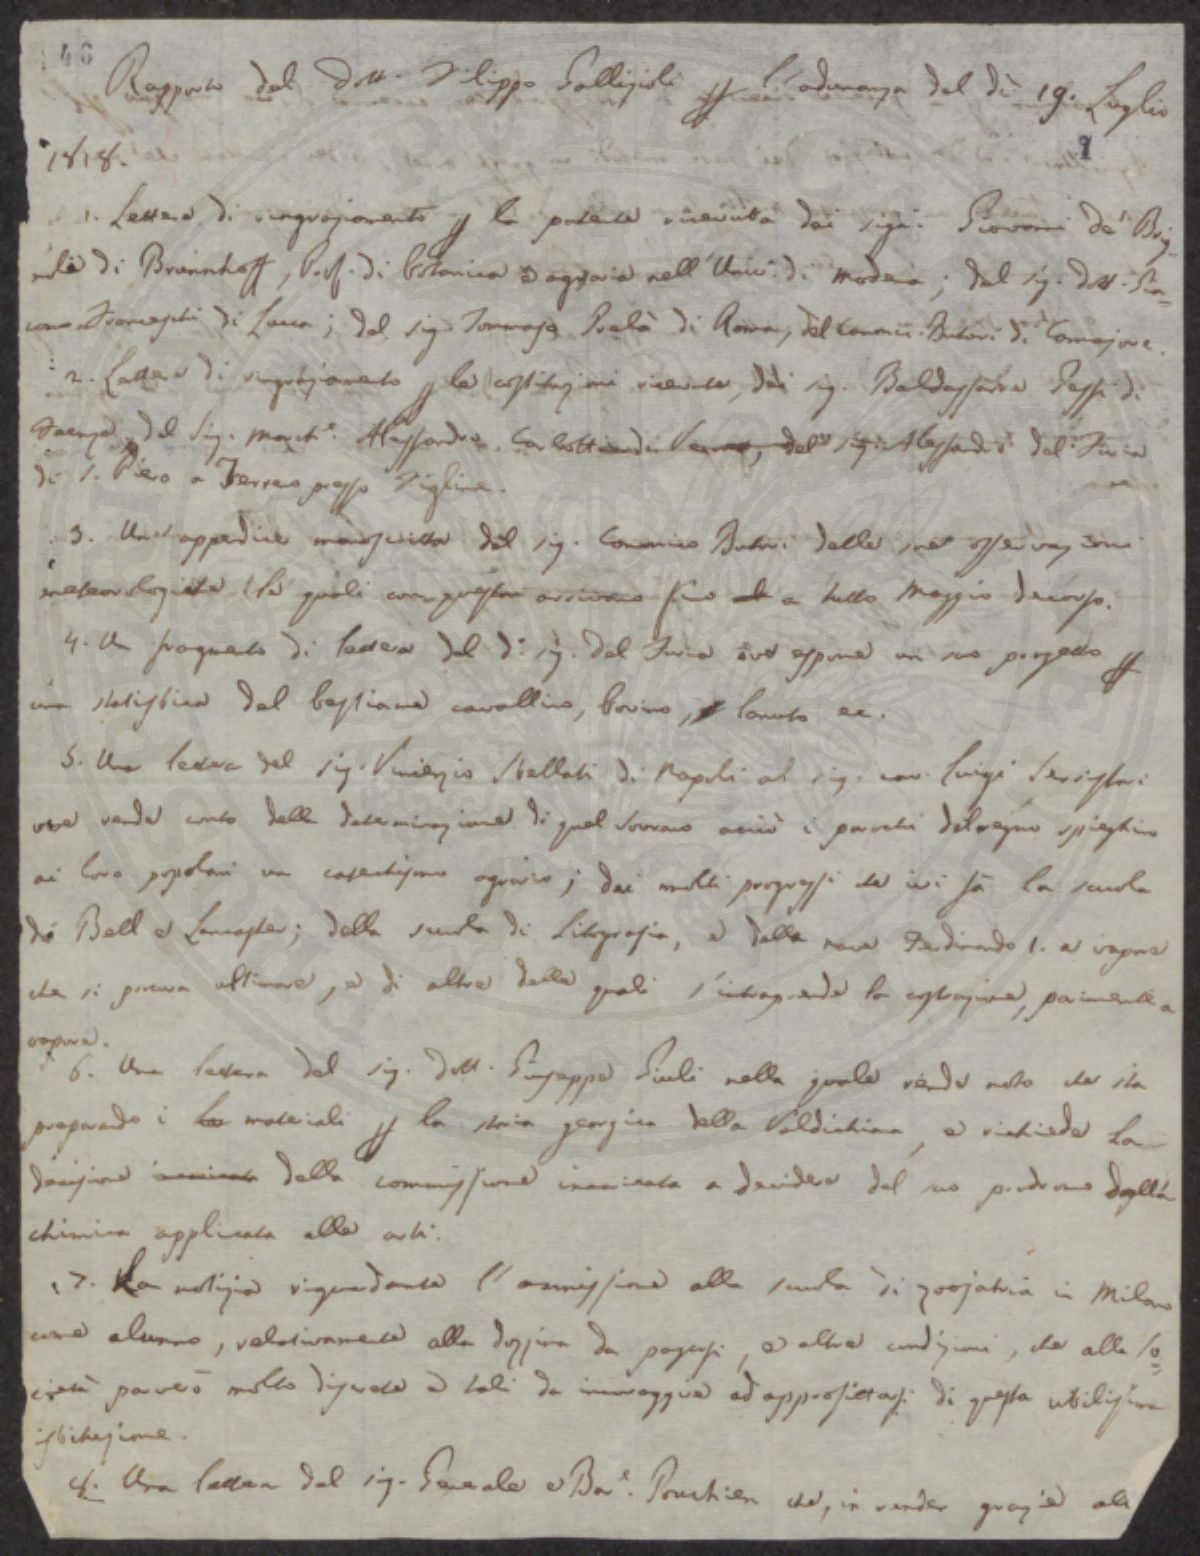 46
Rapporto del Dott. Filippo Gallizioli per l'adunanza del dì 19. Luglio
1818.
1. Lettere di ringraziamento per la patente ricevuta dai sigi. Giovanni de' Brig-
nole di Brünnhoff, Prof. di botanica e agraria nell' Univ. di Modena; del sig. dott. Gia=
como Franceschi di Lucca; del sig. Tommaso Prelà di Roma, del Canonico Butori di Camajore.
2. Lettere di ringraziamento per le costituzioni ricevute, dai sig. Baldassarre Gessi di
Faenza, del Sig. March. Alessandro Carlotti di Verona, del sig. Alessandro del Furia
di S. Piero a Terreno presso Figline.
3. Un' appendice manoscritta del sig. Canonico Butori delle sue osservazioni
meteorologiche le quali con questa arrivano fino a tutto Maggio decorso.
4. Un fragmento di lettera del d. sig. del Furia ove espone un suo progetto per
una statistica del bestiame cavallino, bovino, lanuto ec.
5. Una lettera del sig. Vincenzio Stellati di Napoli al sig. cav. Luigi Serristori
ove rende conto della determinazione di quel Sovrano acciò i parochi del regno spieghino
ai loro popolani un catechismo agrario; dei molti progressi che ivi fa la scuola
di Bell e Lancaster; della scuola di Litografia, e della nave Ferdinando I. a vapore
che si procura ultimare, e di altre delle quali s'intraprende la costruzione, parimente a
vapore.
6. Una lettera del sig. dott. Giuseppe Giuli nella quale rende noto che sta
preparando i materiali per la storia georgica della Valdichiana, e richiede la
decisione della commissione incaricata a decidere del suo prodromo della
chimica applicata alle arti.
7. La notizia riguardante l'ammissione alla scuola di zoojatria in Milano
come alunno, relativamente alla dozzina da pagarsi, e altre condizioni, che alla So=
cietà parvero molto discrete e tali da incoraggire ad approfittarsi di questa utilissima
istituzione.
8. Una lettera del sig. Generale e Bar. che, in render grazie alla